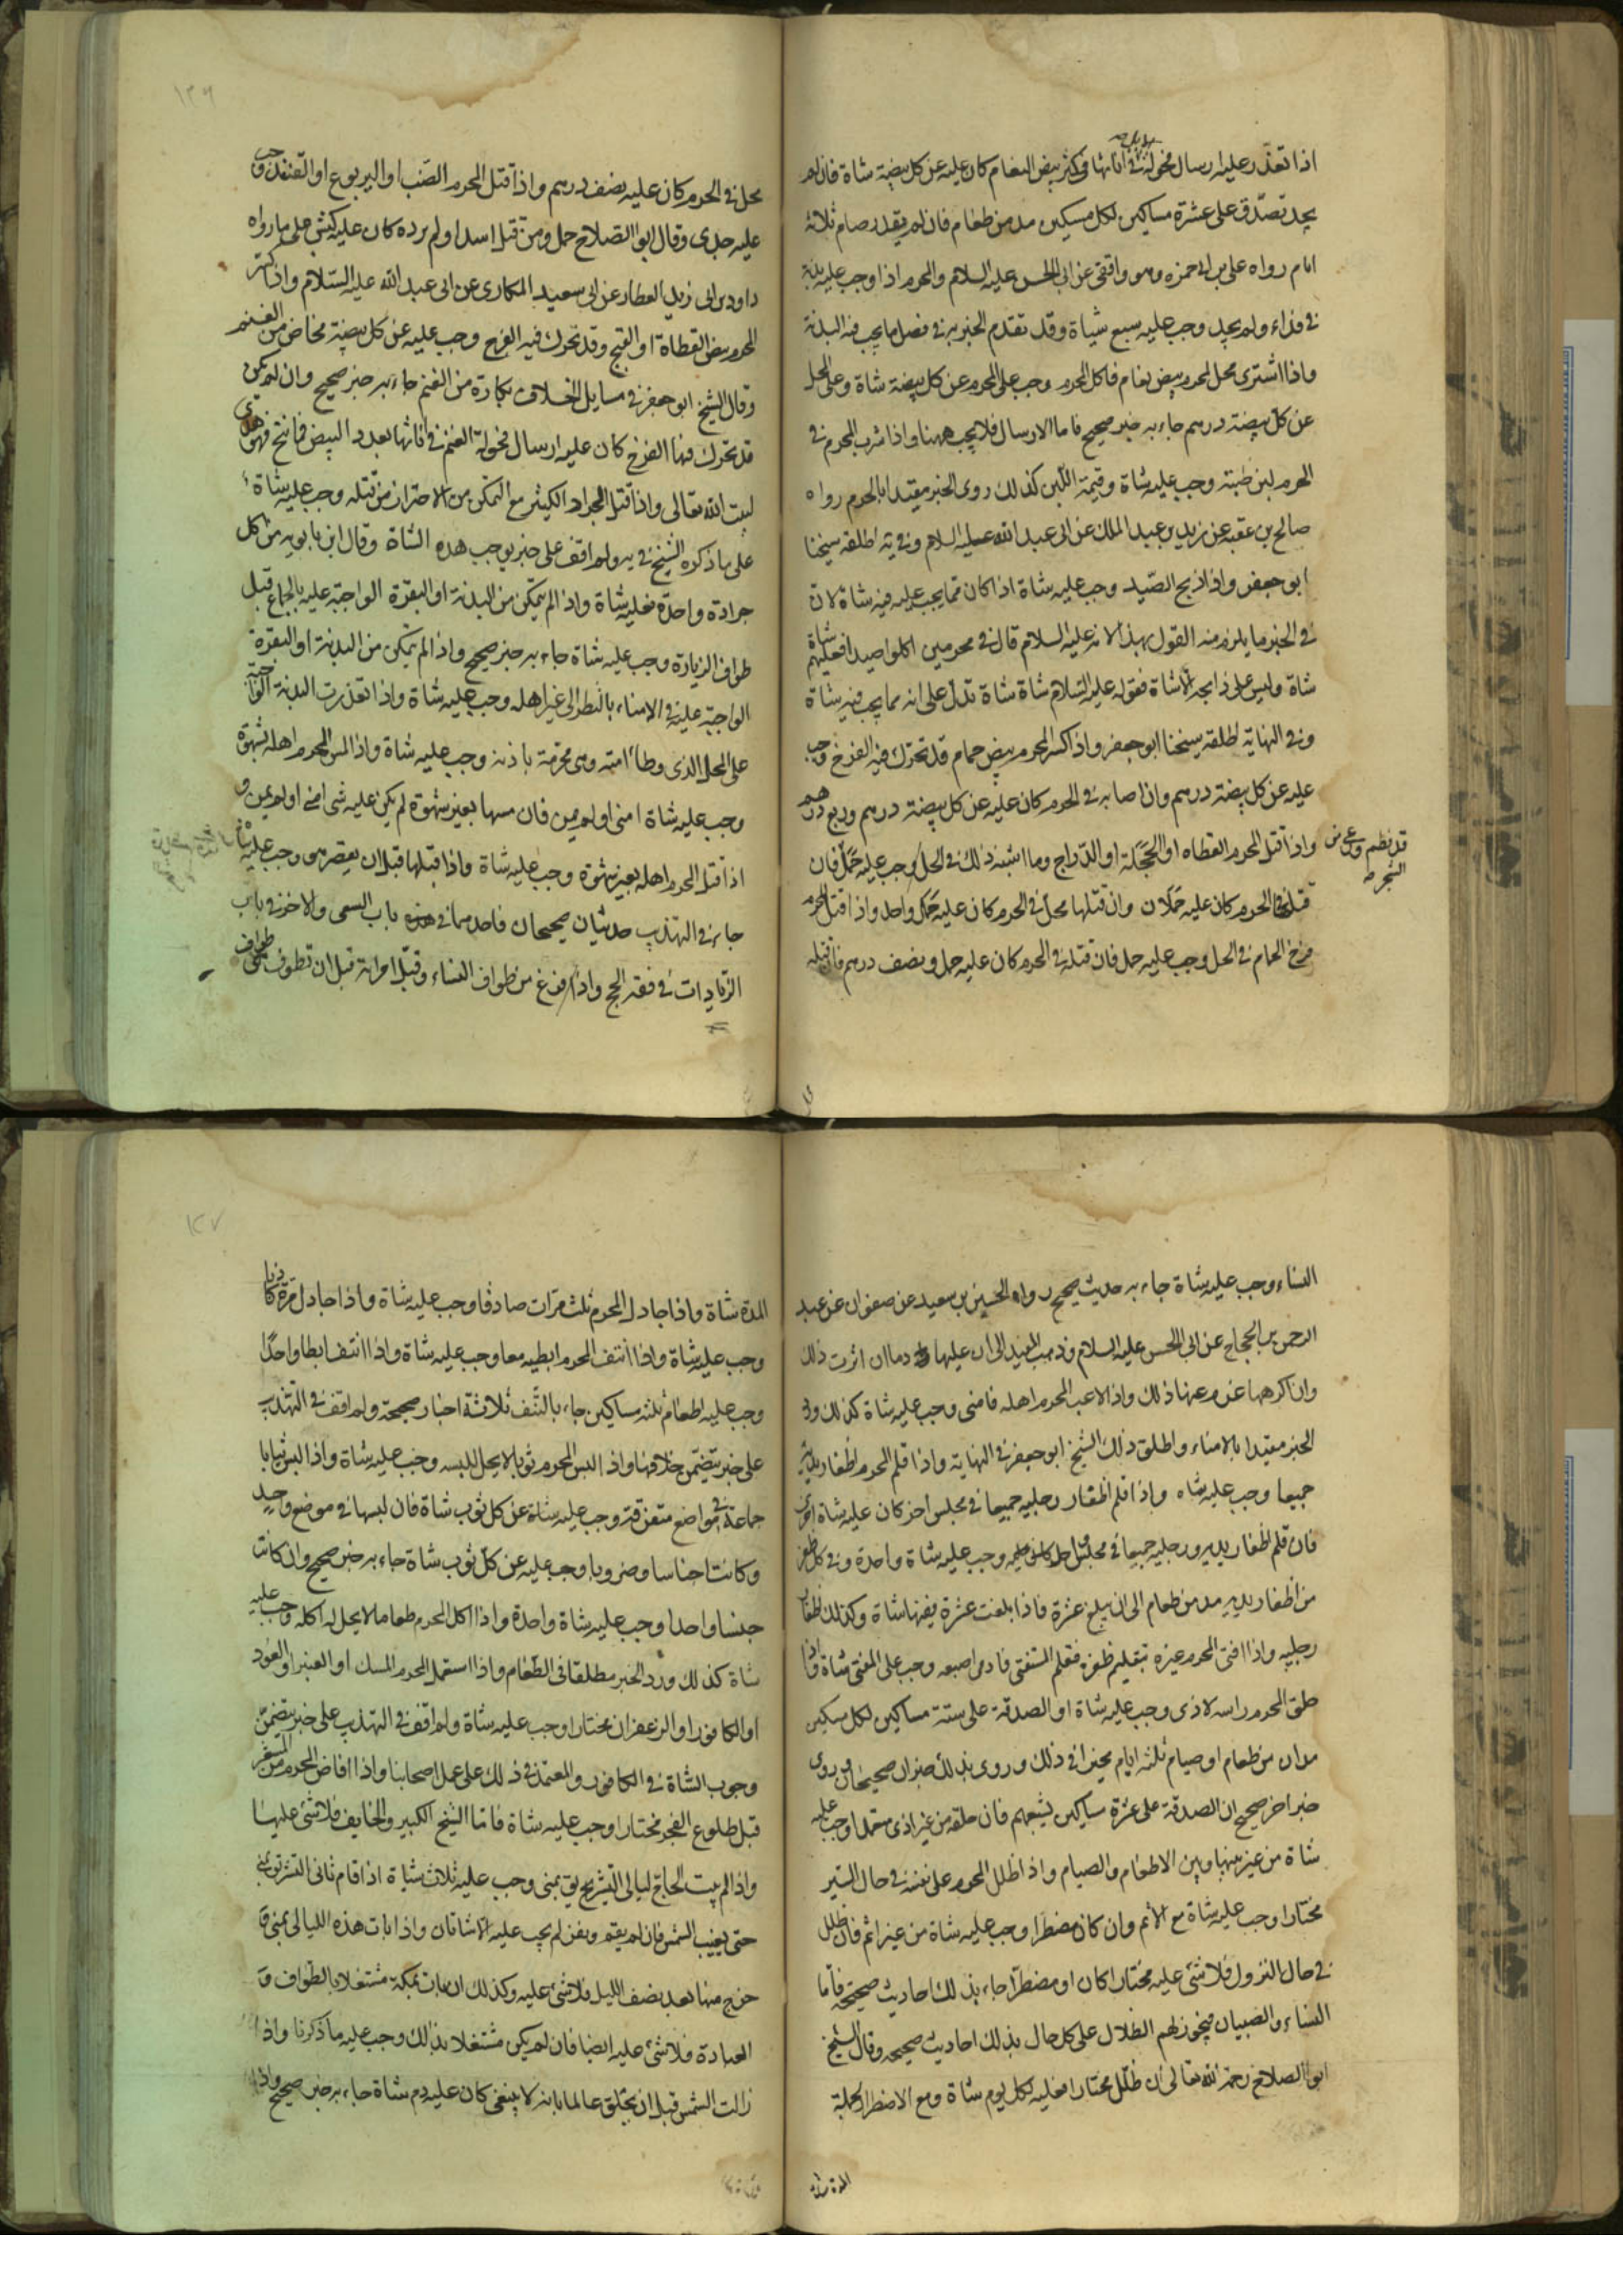 اذا تعذر عليه ارسال فحولة في اناثها في كثير بيض النعام كان عليه عن كل بيضة شاة فان لم
يجد تصدق على عشرة مساكين لكل مسكين مد من طعام فان لم يقدر صام ثلاثة
ايام رواه علي بن ابي حمزه وهو واقفي عن ابي الحسن عليه السلام والمحرم اذا وجب عليه بدنة
في فداء ولم يجد وجب عليه سبع شياة وقد تقدم الخبر به في فصل ما يجب فيه البدنة
واذا اشترى محل لمحرم بيض نعام فاكل المحرم وجب على المحرم عن كل بيضة شاة وعلى المحل
عن كل بيضة درهم جاء به خبر صحيح فاما الارسال فلا يجب ههنا واذا شرب المحرم في
الحرم لبن ظبية وجب عليه شاة وقيمة اللبن كذلك روى الخبر مقيدا بالحرم رواه
صالح بن عقبة عن يزيد بن عبد الملك عن ابي عبد الله عليه السلام وفي يه اطلقه شيخنا
ابو جعفر واذا ذبح الصيد وجب عليه شاة اذا كان مما يجب عليه فيه شاة لان
في الخبر ما يلزم منه القول بهذا لانه عليه السلام قال في محرمين اكلوا صيدا فعليهم شاة
شاة وليس على ذابحه الا شاة فقوله عليه السلام شاة شاة تدل على انه مما يجب فيه شاة
وفي النهاية اطلقه شيخنا ابو جعفر واذا كسر المحرم بيض حمام قد تحرك فيه الفرخ وجب
عليه عن كل بيضة درهم وان اصابه في الحرم كان عليه عن كل بيضة درهم وربع درهم
قد فطم ورعى من الشجر صه
واذا قتل المحرم القطاه او الحجلة او الدراج وما اشبه ذلك في الحل وجب عليه حمل فان
قتله في الحرم كان عليه حملان وان قتلها محل في الحرم كان عليه حمل واحد واذا قتل المحرم
فرخ الحمام في الحل وجب عليه حمل فان قتله في الحرم كان عليه حمل ونصف درهم فان قتله
١٢٦
محل في الحرم كان عليه نصف درهم واذا قتل المحرم الضب او اليربوع او القنفذ وجب
عليه جدى وقال ابو الصلاح حمل ومن قتل اسدا ولم يرده كان عليه كبش على ما رواه
داود بن ابي زيد العطار عن ابي سعيد المكاري عن ابي عبد الله عليه السلام واذا كسر
المحرم بيض القطاة او القبج وقد تحرك فيه الفرخ وجب عليه عن كل بيضة مخاض من الغنم
وقال الشيخ ابو جعفر في مسايل الخلاف بكارة من الغنم جاء به خبر صحيح وان لم يكن
قد تحرك فيها الفرخ كان عليه ارسال فحولة الغنم في اناثها بعدد البيض فما نتج فهو هدى
لبيت الله تعالى واذا قتل الجراد الكثير مع التمكن من الاحتراز من قتله وجب عليه شاة
على ما ذكره الشيخ في يه ولم اقف على خبر يوجب هذه الشاة وقال ابن بابويه من اكل
جرادة واحدة فعليه شاة واذا لم يتمكن من البدنة او البقرة الواجبة عليه بالجماع قبل
طواف الزيارة وجب عليه شاة جاء به خبر صحيح واذا لم يتمكن من البدنة او البقرة
الواجبة عليه في الامناء بالنظر الى غير اهله وجب عليه شاة واذا تعذرت البدنة الواجبة
على المحل الذي وطأ امته وهي محرمة باذنه وجب عليه شاة واذا لمس المحرم اهله بشهوة
وجب عليه شاة امنى او لم يمن فان مسها بغير شهوة لم يكن عليه شي امنى او لم يمن و
اذا قبل المحرم اهله بغير شهوة وجب عليه شاة واذا قبلها قبل ان يقصر هو وجب عليه شاة
جاء في التهذيب حديثان صحيحان فاحدهما في باب السعي والاخر في باب
الزيادات في فقه الحج واذا فرغ من طواف النساء وقبل امراته قبل ان تطوف هي طواف
النساء وجب عليه شاة جاء به حديث صحيح رواه الحسين بن سعيد عن صفوان عن عبد
الرحمن بن الحجاج عن ابي الحسن عليه السلام وذهب المفيد الى ان عليها دما ان اثرت ذلك
وان اكرهها غرم عنها ذلك واذا لاعب المحرم اهله فامنى وجب عليه شاة كذلك ورد
الخبر مقيدا بالامناء واطلق ذلك الشيخ ابو جعفر في النهاية واذا قلم المحرم اظفار يديه
جميعا وجب عليه شاه واذا قلم اظفار رجليه جميعا في مجلس اخر كان عليه شاة اخرى
فان قلم اظفار يديه ورجليه جميعا في مجلس واحد وجب عليه شاة واحدة وفي كل ظفر
من اظفار يديه مد من طعام الى ان يبلغ عشرة فاذا بلغت عشرة ففيها شاة وكذلك اظفار
رجليه واذا افتى المحرم غيره بتقليم ظفره فقلم المستفتى فادمى اصبعه وجب على المفتى شاة واذا
حلق المحرم راسه لاذى وجب عليه شاة او الصدقة على ستة مساكين لكل مسكين
مدان من طعام او صيام ثلثه ايام مخيرا في ذلك وروى بذلك خبران صحيحان وروى
خبر اخر صحيح ان الصدقة على عشرة مساكين يشبعهم فان حلقه من غير اذى متعمدا وجب عليه
شاة من غير بينها وبين الاطعام والصيام واذا ظلل المحرم على نفسه في حال السير
مختارا وجب عليه شاة مع الاثم وان كان مضطرا وجب عليه شاة من غير اثم فان ظلل
في حال النزول فلا شئ عليه مختارا كان او مضطرا جاء بذلك احاديث صحيحة فاما
النساء والصبيان فيجوز لهم الظلال على كل حال بذلك احاديث صحيحه وقال الشيخ
ابو الصلاح رحمه الله تعالى ان ظلل مختارا فعليه لكل يوم شاة ومع الاضطرار لجملة
المدة شاة
١٢٧
المدة شاة واذا جادل المحرم ثلث مرات صادقا وجب عليه شاة واذا جادل مرة كاذبا
وجب عليه شاة واذا انتف المحرم ابطيه معا وجب عليه شاة واذا انتف ابطا واحدا
وجب عليه اطعام ثلثه مساكين جاء بالنتف ثلاثة اخبار صحيحة ولم اقف في التهذيب
على خبر يتضمن خلافها واذا لبس المحرم ثوبا لا يحل لبسه وجب عليه شاة واذا لبس ثيابا
جماعة في مواضع متفرقة وجب عليه شاة عن كل ثوب شاة فان لبسها في موضع واحد
وكانت اجناسا وضروبا وجب عليه عن كل ثوب شاة جاء به خبر صحيح وان كانت
جنسا واحدا وجب عليه شاة واحدة واذا اكل المحرم طعاما لا يحل له اكله وجب عليه
شاة كذلك ورد الخبر مطلقا في الطعام واذا استعمل المحرم المسك او العنبر او العود
او الكافور او الزعفران مختارا وجب عليه شاة ولم اقف في التهذيب على خبر يتضمن
وجوب الشاة في الكافور والمعتمد في ذلك على عمل اصحابنا واذا افاض المحرم من المشعر
قبل طلوع الفجر مختارا وجب عليه شاة فاما الشيخ الكبير والخايف فلا شئ عليهما
واذا لم يبت الحاج ليالي التشريق بمنى وجب عليه ثلاث شياة اذا قام ثاني التشريق بمنى
حتى يغيب الشمس فان لم يقم ونفر لم يجب عليه الا شاتان واذا بات هذه الليالي بمنى و
خرج منها بعد نصف الليل فلا شئ عليه وكذلك ان بات بمكة مشتغلا بالطواف و
العبادة فلا شئ عليه ايضا فان لم يكن مشتغلا بذلك وجب عليه ما ذكرنا واذا
زالت الشمس قبل ان يحلق عالما بانه لا ينبغي كان عليه دم شاة جاء به خبر صحيح واذا